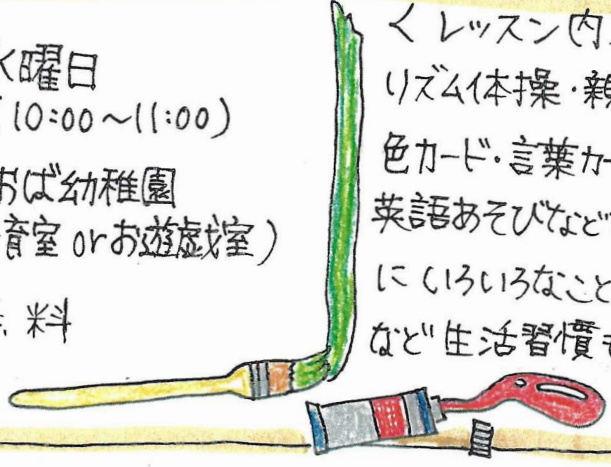 水曜日
(10:00〜11:00)
おば幼稚園
育室orお遊戯室)
料
くレッスン内
リズム体操・親
色カード・言葉カー
英語あそびなど
にいろいろなこと
など生活習慣